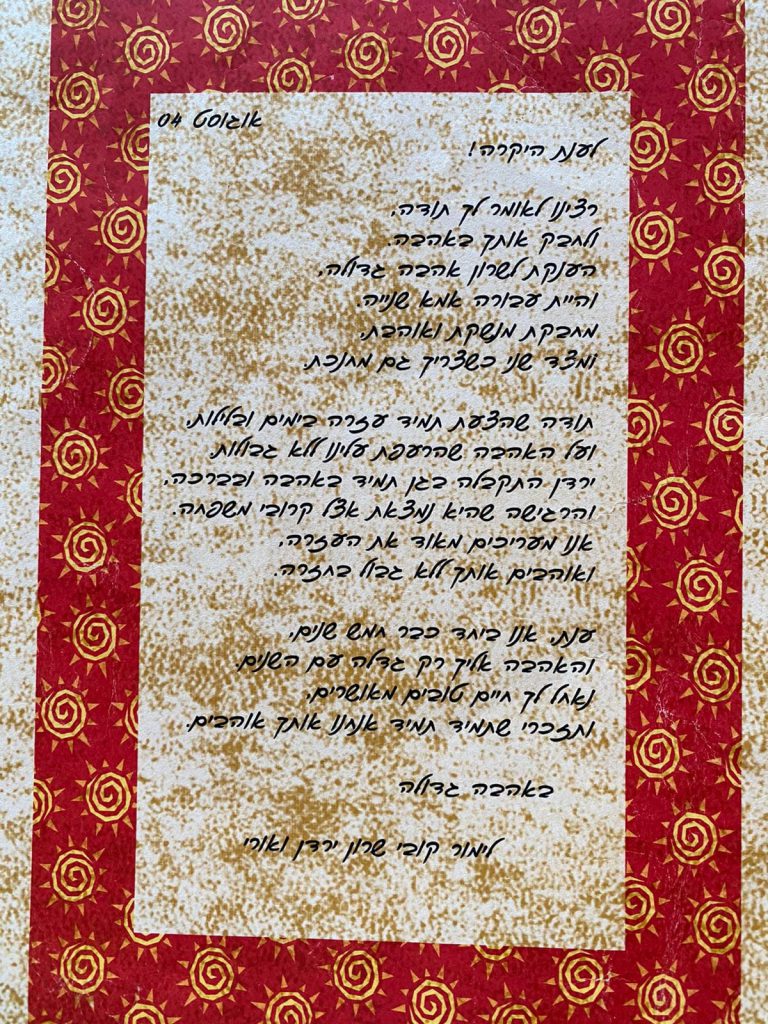 אוגוסט 04
לענת היקרה!
רצינו לאומר לך תודה,
ולחבק אותך באהבה.
הענקת לשרון אהבה גדולה,
והיית עבורה אמא שנייה.
מחבקת מנשקת ואוהבת,
ומצד שני כשצריך גם מחנכת.
תודה שהצעת תמיד עזרה בימים ובלילות,
ועל האהבה שהרעפת עלינו ללא גבולות.
ירדן התקבלה בגן תמיד באהבה ובברכה,
והרגישה שהיא נמצאת אצל קרובי משפחה.
אנו מעריכים מאוד את העזרה,
ואוהבים אותך ללא גבול בחזרה.
ענת, אנו ביחד כבר חמש שנים,
והאהבה אליך רק גדלה עם השנים.
נאחל לך חיים טובים מאושרים,
ותזכרי שתמיד תמיד אנחנו אותך אוהבים.
באהבה גדולה
לימור קובי שרון ירדן ואורי